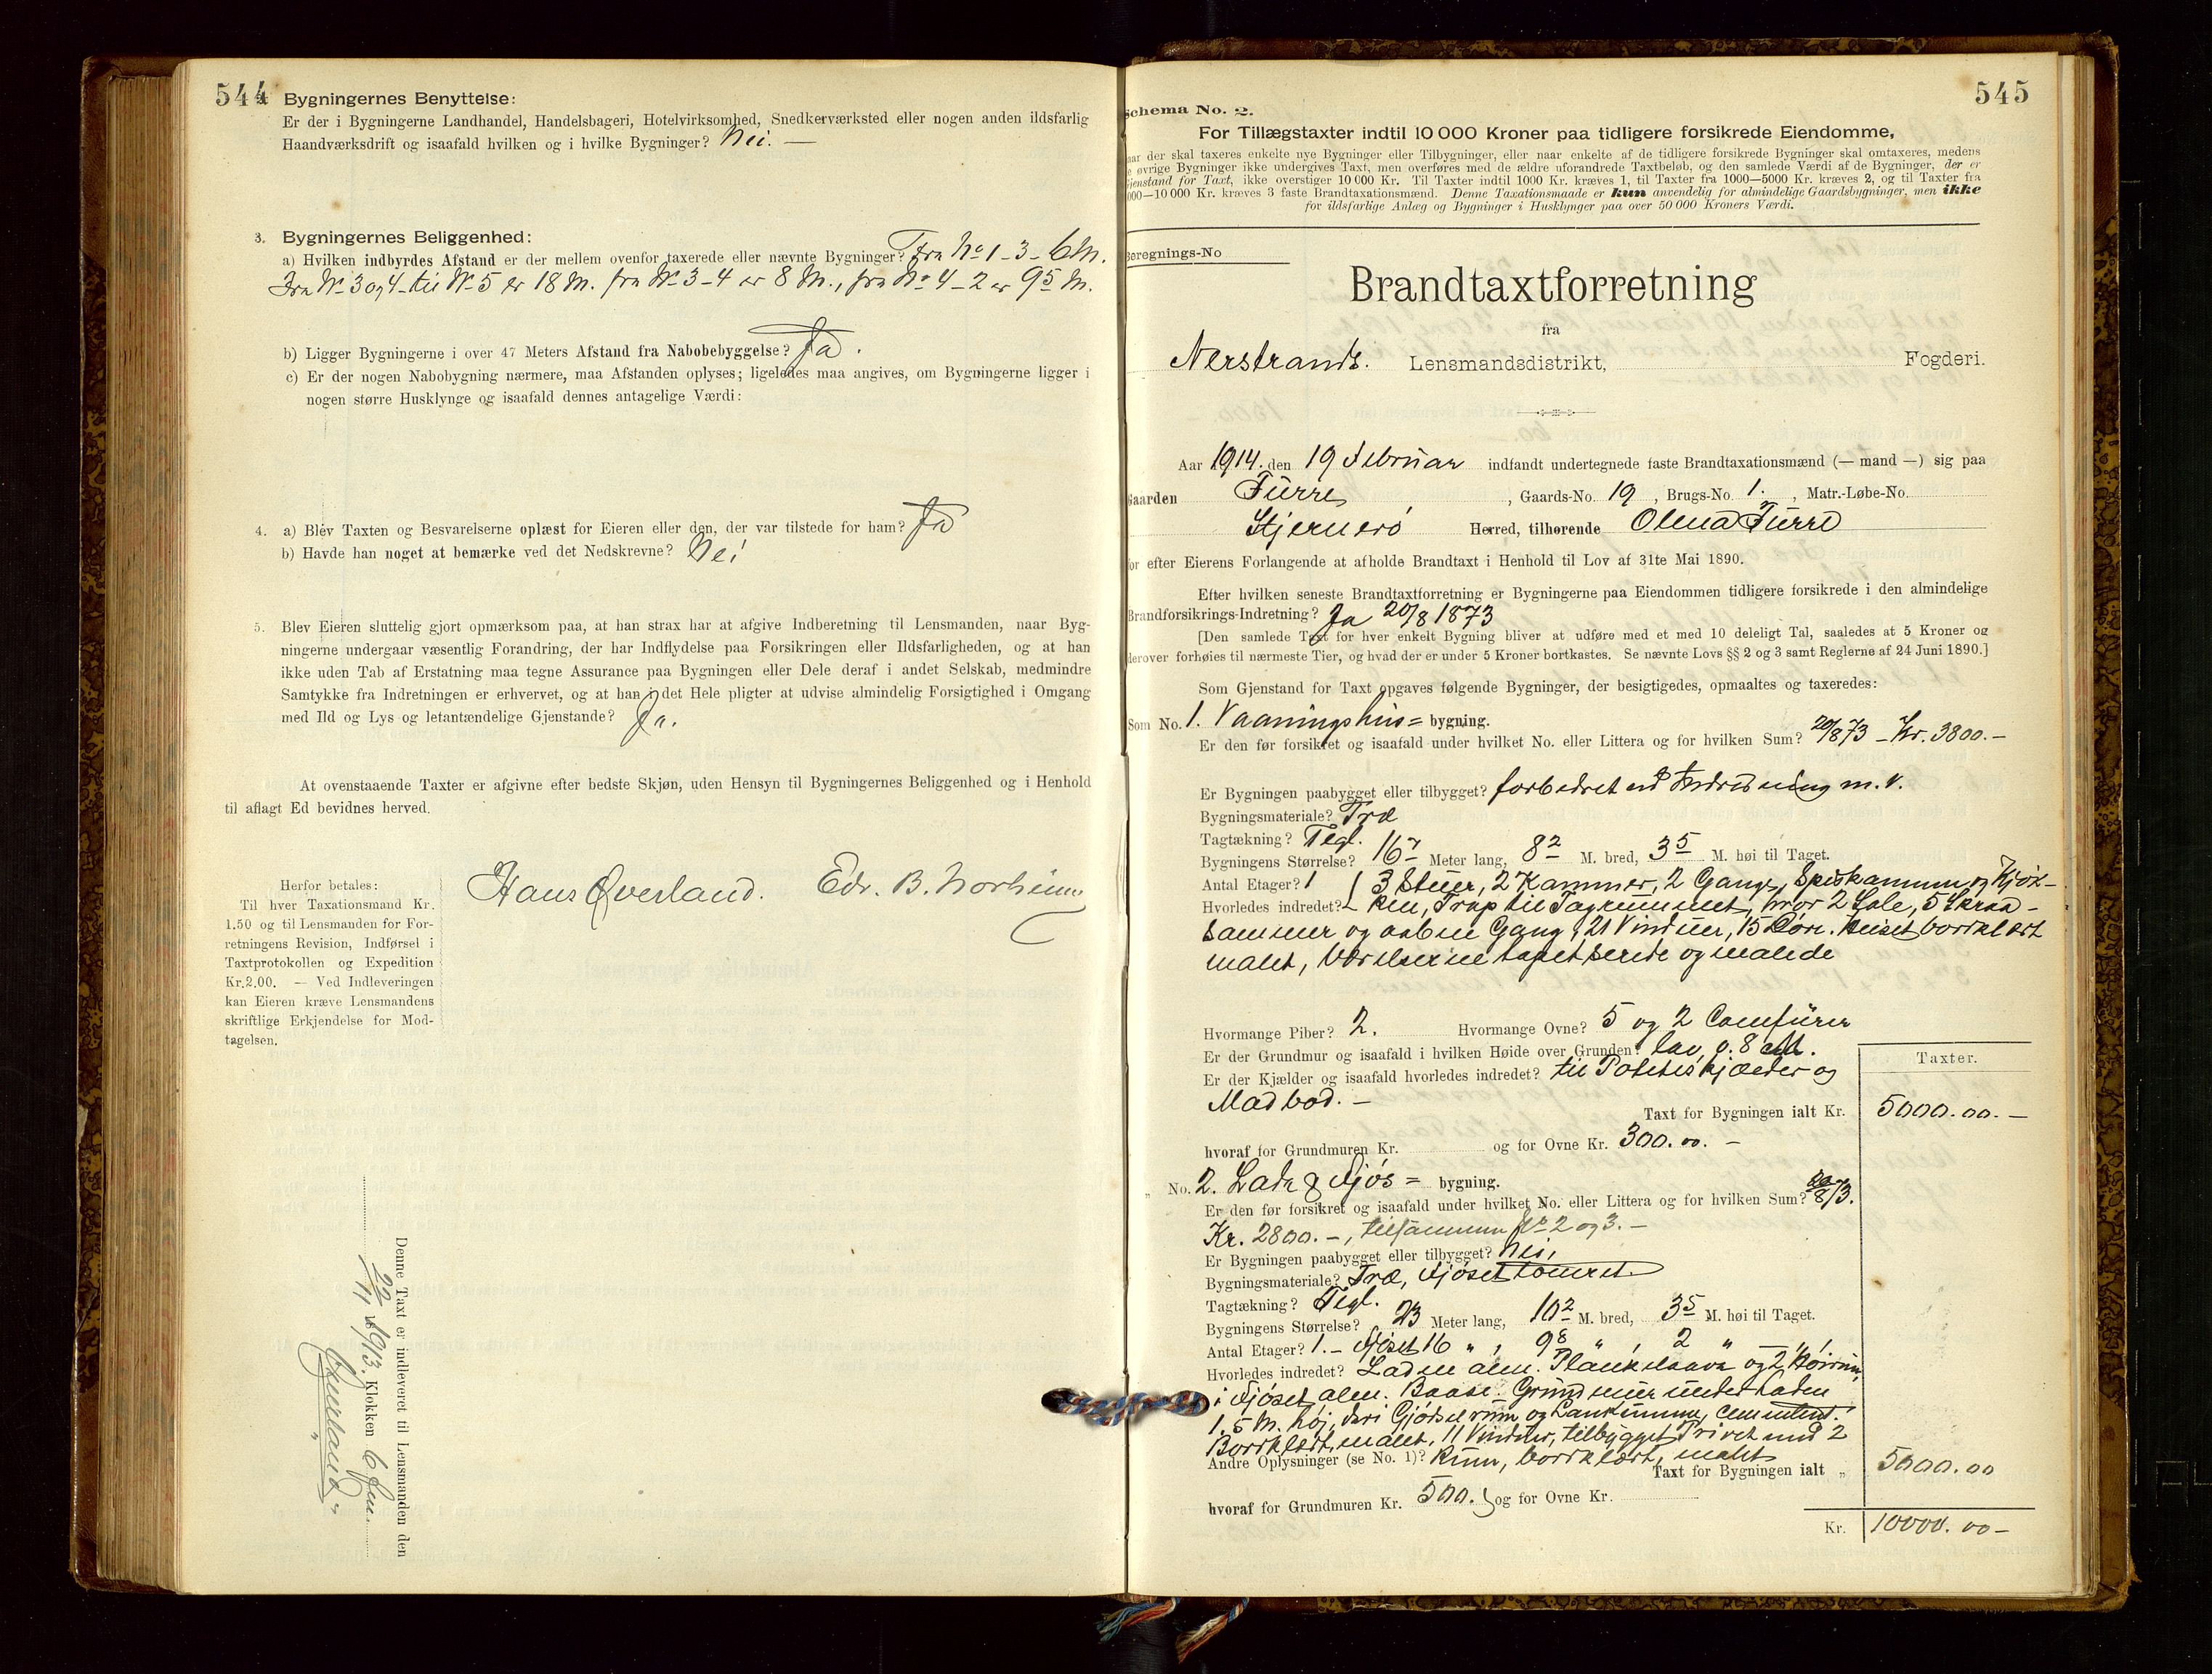 544
Bygningernes Benyttelse:
Er der i Bygningerne Landhandel, Handelsbageri, Hotelvirksomhed, Snedkerværksted eller nogen anden ildsfarlig
Haandværksdrift og isaafald hvilken og i hvilke Bygninger? Nei. —
3. Bygningernes Beliggenhed:
a) Hvilken indbyrdes Afstand er der mellem ovenfor taxerede eller nævnte Bygninger? Fra No 1 - 3 - 6 M.
Fra No 3 og 4 til No 5 er 18 M. fra No 3 - 4 er 8 M., fra No 4 - 2 er 95 M.
b) Ligger Bygningerne i over 47 Meters Afstand fra Nabobebyggelse? Ja.
c) Er der nogen Nabobygning nærmere, maa Afstanden oplyses; ligeledes maa angives, om Bygningerne ligger i
nogen større Husklynge og isaafald dennes antagelige Værdi:
4. a) Blev Taxten og Besvarelserne oplæst for Eieren eller den, der var tilstede for ham? Ja
b) Havde han noget at bemærke ved det Nedskrevne? Nei
5. Blev Eieren sluttelig gjort opmærksom paa, at han strax har at afgive Indberetning til Lensmanden, naar Byg-
ningerne undergaar væsentlig Forandring, der har Indflydelse paa Forsikringen eller Ildsfarligheden, og at han
ikke uden Tab af Erstatning maa tegne Assurance paa Bygningen eller Dele deraf i andet Selskab, medmindre
Samtykke fra Indretningen er erhvervet, og at han i det Hele pligter at udvise almindelig Forsigtighed i Omgang
med Ild og Lys og letantændelige Gjenstande? Ja.
At ovenstaaende Taxter er afgivne efter bedste Skjøn, uden Hensyn til Bygningernes Beliggenhed og i Henhold
til aflagt Ed bevidnes herved.
Hans Øverland. Edv. B. Norheim
Herfor betales:
Til hver Taxationsmand Kr.
1.50 og til Lensmanden for For-
retningens Revision, Indførsel i
Taxtprotokollen og Expedition
Kr.2.00. — Ved Indleveringen
kan Eieren kræve Lensmandens
skriftlige Erkjendelse for Mod-
tagelsen.
Denne Taxt er indleveret til Lensmanden den
22/11 1913 Klokken 6 Em.
545
Schema No. 2.
For Tillægstaxter indtil 10 000 Kroner paa tidligere forsikrede Eiendomme,
aar der skal taxeres enkelte nye Bygninger eller Tilbygninger, eller naar enkelte af de tidligere forsikrede Bygninger skal omtaxeres, medens
e øvrige Bygninger ikke undergives Taxt, men overføres med de ældre uforandrede Taxtbeløb, og den samlede Værdi af de Bygninger, der er
jenstand for Taxt, ikke overstiger 10 000 Kr. Til Taxter indtil 1000 Kr. kræves 1, til Taxter fra 1000—5000 Kr. kræves 2, og til Taxter fra
000—10 000 Kr. kræves 3 faste Brandtaxationsmænd. Denne Taxationsmaade er kun anvendelig for almindelige Gaardsbygninger, men ikke
for ildsfarlige Anlæg og Bygninger i Husklynger paa over 50 000 Kroners Værdi.
Beregnings-No
Brandtaxtforretning
fra
Nerstrands. Lensmandsdistrikt, Fogderi.
Aar 1914. den 19 Februar indfandt undertegnede faste Brandtaxationsmænd (— mand —) sig paa
Gaarden Furre, Gaards-No. 19, Brugs-No. 1., Matr.-Løbe-No.
Stjernerö Herred, tilhørende Olena Furre
for efter Eierens Forlangende at afholde Brandtaxt i Henhold til Lov af 31te Mai 1890.
Efter hvilken seneste Brandtaxtforretning er Bygningerne paa Eiendommen tidligere forsikrede i den almindelige
Brandforsikrings-Indretning? Ja 20/8 1873
[Den samlede Taxt for hver enkelt Bygning bliver at udføre med et med 10 deleligt Tal, saaledes at 5 Kroner og
derover forhøies til nærmeste Tier, og hvad der er under 5 Kroner bortkastes. Se nævnte Lovs §§ 2 og 3 samt Reglerne af 24 Juni 1890.]
Som Gjenstand for Taxt opgaves følgende Bygninger, der besigtigedes, opmaaltes og taxeredes:
Som No. 1. Vaaningshus = bygning.
Er den før forsikret og isaafald under hvilket No. eller Littera og for hvilken Sum? 20/8 73 - Kr. 3800.—
Er Bygningen paabygget eller tilbygget? forbedret ved Indredning m. v.
Bygningsmateriale? Træ
Tagtækning? Tegl.
Bygningens Størrelse? 167 Meter lang, 82 M. bred, 35 M. høi til Taget.
Antal Etager? 1 3 Stuer, 2 Kammer, 2 Gange, Speskammer og Kjøk-
Hvorledes indredet? ken, Trap til Tagrummet, hvor 2 Sale, 5 Skraa-
kammer og aaben Gang, 21 Vinduer, 15 Döre. Huset bordklædt
malet, Værelserne tapetserede og malede
Hvormange Piber? 2. Hvormange Ovne? 5 og 2 Comfürer
Er der Grundmur og isaafald i hvilken Høide over Grunden? lav, 0.8 M.
Er der Kjælder og isaafald hvorledes indredet? til Poteteskjælder og
Madbod. —
Taxter.
Taxt for Bygningen ialt Kr. 5000.00.—
hvoraf for Grundmuren Kr. og for Ovne Kr. 300.00. —
„ No. 2. Lade & Fjös = bygning.
Er den før forsikret og isaafald under hvilket No. eller Littera og for hvilken Sum? 20/8 73.
Kr. 2800.—, tilsammen No 2 og 3. —
Er Bygningen paabygget eller tilbygget? Nei,
Bygningsmateriale? Træ, Fjöset tömret.
Tagtækning? Tegl.
Bygningens Størrelse? 23 Meter lang, 102 M. bred, 35 M. høi til Taget.
Antal Etager? 1. — Fjöset 16 „ , 98 „ , 2 „ —
Hvorledes indredet? Laden alm. Plankelaave og 2 Höirum,
i Fjöset alm. Baase. Grundmur under Laden
1.5 M. höj, deri Gjödselrum og Landkumme, cementeret.
Bordklædt, malet, 11 Vinduer, tilbygget Privet med 2
Andre Oplysninger (se No. 1)? Rum, bordklædt, malet
Taxt for Bygningen ialt „ 5000.00
hvoraf for Grundmuren Kr. 500. og for Ovne Kr.
Kr. 10000.00—